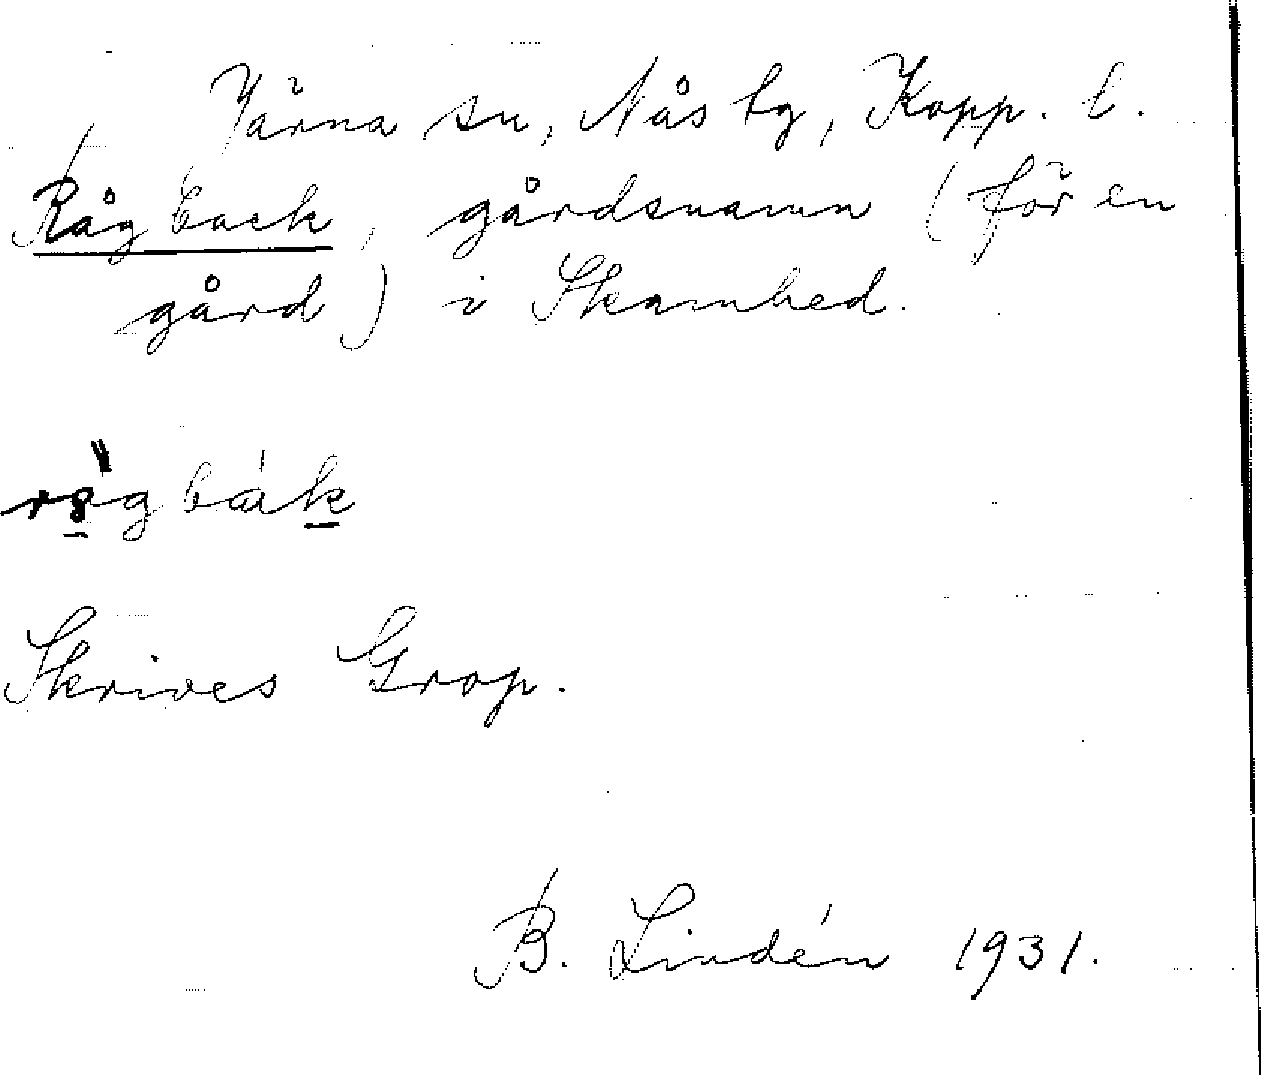 Järna sn, Nås tg, Kopp. l.
Rågback, gårdsnamn (för en
gård) i Skamhed.
Skrives Grop.
B. Lindén 1931.